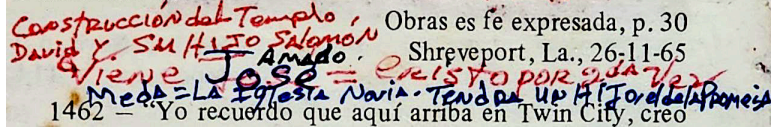 Construcción del Templo
David Y. Su HiJo Salomón
Obras es fe expresada, p. 30
Amado.
Shreveport, La., 26-11-65
Viene José = cristo por 2da Vez
Meda = LA IglesIA Novia. Tendra un HiJo. el de la Promesa
1462 – “Yo recuerdo que aquí arriba en Twin City, creo